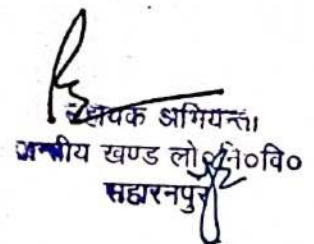 सहायक अभियन्ता
खण्ड लो०नि०वि०
सहारनपुर